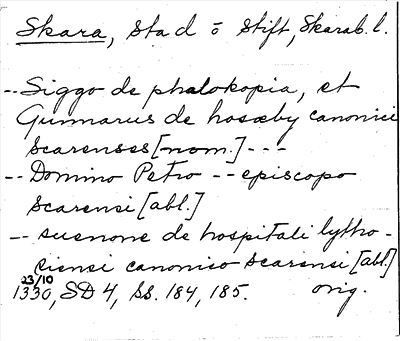 Skara, stad o stift, Skarab. l.
-- Siggo de phalokopia, et
Gunnarus de hosæby canonici
scarenses [nom.] - - -
-- Domino Petro -- episcopo
scarensi [abl.]
-- suenone de hospitali lytho-
siensi canonico scarensi [abl.]
23/10
1330, SD 4, ss. 184, 185. orig.